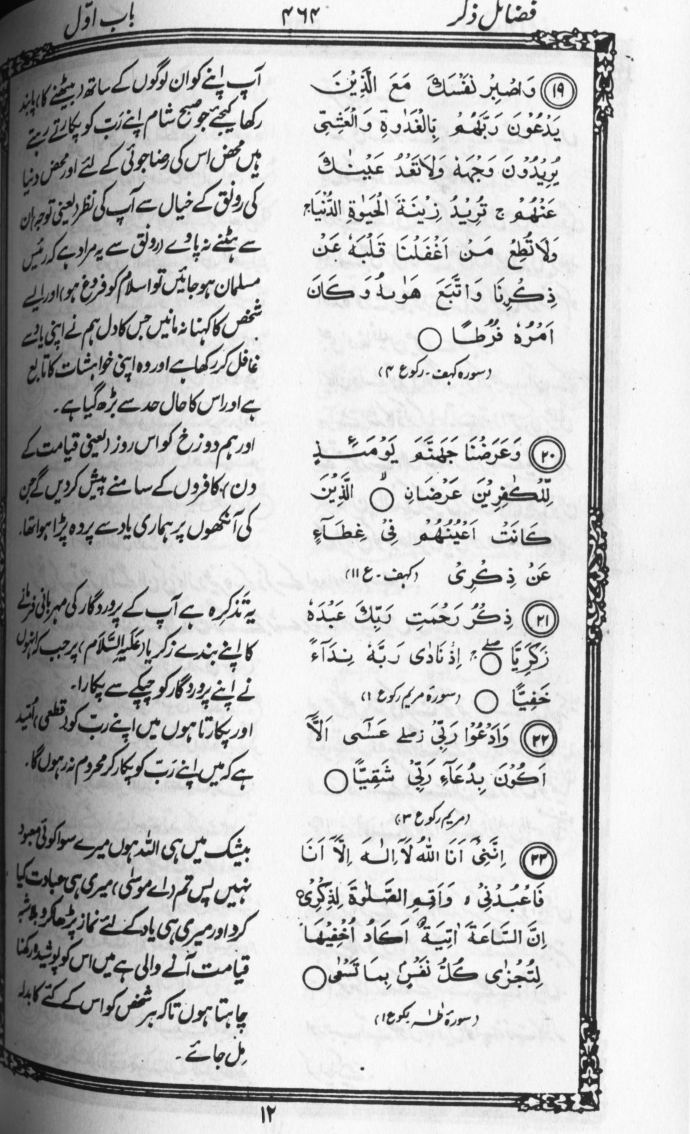 فضائل ذکر
۴۶۴
باب اوّل
۱۹ وَاصْبِرْ نَفْسَكَ مَعَ الَّذِيْنَ
يَدْعُوْنَ رَبَّهُمْ بِالْغَدٰوةِ وَالْعَشِيِّ
يُرِيْدُوْنَ وَجْهَهٗ وَلَا تَعْدُ عَيْنٰكَ
عَنْهُمْ ج تُرِيْدُ زِيْنَةَ الْحَيٰوةِ الدُّنْيَا ج
وَلَا تُطِعْ مَنْ اَغْفَلْنَا قَلْبَهٗ عَنْ
ذِكْرِنَا وَاتَّبَعَ هَوٰىهُ وَكَانَ
اَمْرُهٗ فُرُطًا ○
(سورہ کہف ۔ رکوع ۴)
آپ اپنے کو ان لوگوں کے ساتھ (بیٹھنے کا) پابند
رکھا کیجئے جو صبح شام اپنے رَب کو پکارتے رہتے
ہیں محض اس کی رضا جوئی کے لئے اور محض دنیا
کی رونق کے خیال سے آپ کی نظر (یعنی توجہ) ان
سے ہٹنے نہ پاوے (رونق سے یہ مراد ہے کہ رئیس
مسلمان ہو جائیں تو اسلام کو فروغ ہو) اور ایسے
شخص کا کہنا نہ مانیں جس کا دل ہم نے اپنی یاد سے
غافل کر رکھا ہے اور وہ اپنی خواہشات کا تابع
ہے اور اس کا حال حد سے بڑھ گیا ہے ۔
۲۰ وَعَرَضْنَا جَهَنَّمَ يَوْمَئِذٍ
لِّلْكٰفِرِيْنَ عَرْضًا ○ الَّذِيْنَ
كَانَتْ اَعْيُنُهُمْ فِيْ غِطَآءٍ
عَنْ ذِكْرِيْ (کہف ۔ ع ۱۱)
اور ہم دوزخ کو اس روز (یعنی قیامت کے
دن) کافروں کے سامنے پیش کر دیں گے جن
کی آنکھوں پر ہماری یاد سے پردہ پڑا ہوا تھا ۔
۲۱ ذِكْرُ رَحْمَتِ رَبِّكَ عَبْدَهٗ
زَكَرِيَّا ○ اِذْ نَادٰى رَبَّهٗ نِدَآءً
خَفِيًّا ○ (سورۃ مریم رکوع ۱)
یہ تذکرہ ہے آپ کے پروردگار کی مہربانی فرمانے
کا اپنے بندے زکریا (عَلَیہِ السَّلَام) پر جب کہ انہوں
نے اپنے پروردگار کو چپکے سے پکارا ۔
۲۲ وَاَدْعُوْا رَبِّيْ صلے عَسٰٓى اَلَّآ
اَكُوْنَ بِدُعَآءِ رَبِّيْ شَقِيًّا ○
(مریم رکوع ۳)
اور پکارتا ہوں میں اپنے ربّ کو (قطعی) اُمّید
ہے کہ میں اپنے رَبّ کو پکار کر محروم نہ رہوں گا ۔
۲۳ اِنَّنِيْٓ اَنَا اللهُ لَآ اِلٰهَ اِلَّآ اَنَا
فَاعْبُدْنِيْ ۙ وَاَقِمِ الصَّلٰوةَ لِذِكْرِيْ
اِنَّ السَّاعَةَ اٰتِيَةٌ اَكَادُ اُخْفِيْهَا
لِتُجْزٰى كُلُّ نَفْسٍۭ بِمَا تَسْعٰى ○
(سورۃ طٰہٰ رکوع ۱)
بیشک میں ہی اللہ ہوں میرے سوا کوئی معبود
نہیں پس تم (اے موسٰی) میری ہی عبادت کیا
کرو اور میری ہی یاد کے لئے نماز پڑھا کرو بلاشبہ
قیامت آنے والی ہے میں اس کو پوشیدہ رکھنا
چاہتا ہوں تاکہ ہر شخص کو اس کے کئے کا بدلہ
مل جائے ۔
۱۲